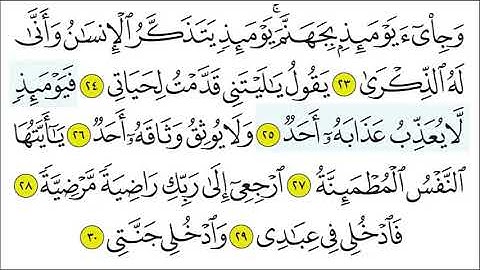 وَجِاْىٓءَ يَوْمَئِذٍۭ بِجَهَنَّمَۚ يَوْمَئِذٍ يَتَذَكَّرُ ٱلْإِنسَٰنُ وَأَنَّىٰ
لَهُ ٱلذِّكْرَىٰ ٢٣ يَقُولُ يَٰلَيْتَنِى قَدَّمْتُ لِحَيَاتِى ٢٤ فَيَوْمَئِذٍ
لَّا يُعَذِّبُ عَذَابَهُۥٓ أَحَدٌ ٢٥ وَلَا يُوثِقُ وَثَاقَهُۥٓ أَحَدٌ ٢٦ يَٰٓأَيَّتُهَا
ٱلنَّفْسُ ٱلْمُطْمَئِنَّةُ ٢٧ ٱرْجِعِىٓ إِلَىٰ رَبِّكِ رَاضِيَةً مَّرْضِيَّةً ٢٨
فَٱدْخُلِى فِى عِبَٰدِى ٢٩ وَٱدْخُلِى جَنَّتِى ٣٠